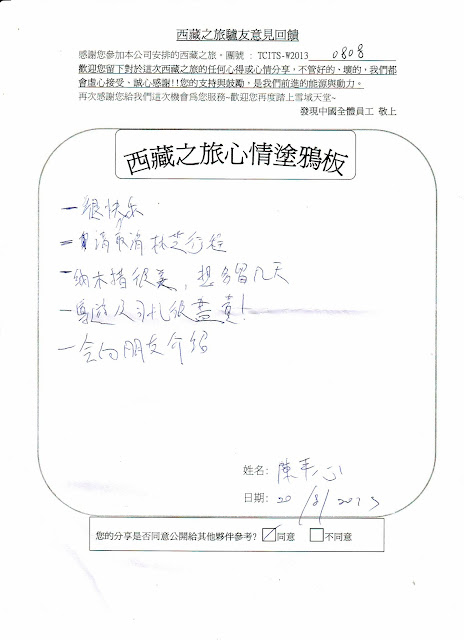 西藏之旅驢友意見回饋
感謝您參加本公司安排的西藏之旅。團號：TCITS-W2013 0808
歡迎您留下對於這次西藏之旅的任何心得或心情分享，不管好的、壞的，我們都
會虛心接受、誠心感謝!!您的支持與鼓勵，是我們前進的能源與動力。
再次感謝您給我們這次機會為您服務~歡迎您再度踏上雪域天堂~
發現中國全體員工 敬上
西藏之旅心情塗鴉板
一很快樂
請取消林芝行程
納木措很美，想多留几天
導遊及司机很盡責!
一会向朋友介紹
姓名: 陳
日期: 20/8/2013
您的分享是否同意公開給其他夥伴參考? ☑同意 □不同意